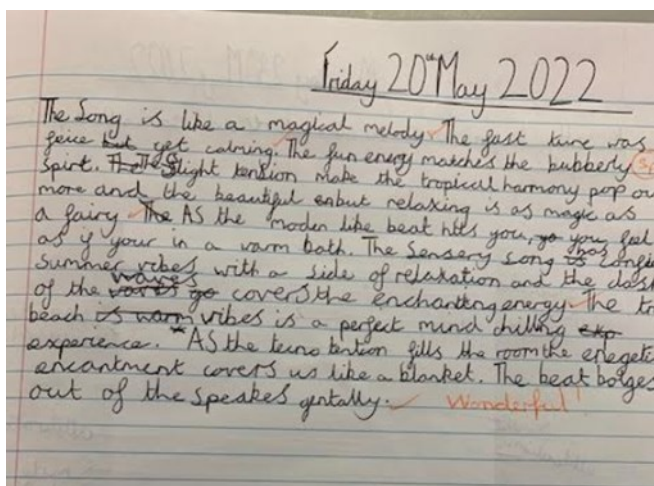 Friday 20th May 2022
The Song is like a magical melody. The fast tune was
feice but yet calming. The fun energy matches the bubberly
spirt. The slight tention make the tropical harmony pop ou
more and the beautiful but relaxing is as magic as
a fairy. The AS the moden like beat hits you, you feel
as if your in a warm bath. The Sensery song has
summer vibes with a side of relaxation and the
of the waves covers the enchanting energy. The tr
beach is warm vibes is a perfect mind chilling exp
experience. *AS the tecno tention fills the room the enegetic
encantment covers us like a blanket. The beat bolges
out of the speakes gentally. Wonderful!